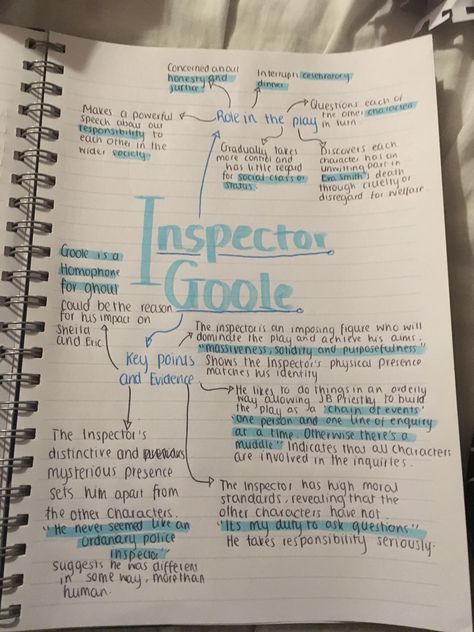 Concerned about
honesty and
justice
Interrupts celebratory
dinner
Questions each of
the other characters
in turn.
Role in the play
Makes a powerful
speech about our
responsibility to
each other in the
wider society
Gradually takes
more control and
has little regard
for social class or
status.
Discovers each
character has an
unwitting part in
Eva Smith's death
through cruelty or
disregard for welfare
Inspector
Goole
Goole is a
Homophone
for ghoul
could be the reason
for his impact on
Sheila
and Eric
Key points
and Evidence
The inspector is an imposing figure who will
dominate the play and achieve his aims.
"massiveness, solidity and purposefulness"
shows the Inspector's physical presence
matches his identity
He likes to do things in an orderly
way, allowing JB Priestly to build
the play as a 'chain of events'
'one person and one line of enquiry
at a time. Otherwise there's a
muddle" Indicates that all characters
are involved in the inquiries.
The Inspector's
distinctive and
mysterious presence
sets him apart from
the other characters.
"He never seemed like an
Ordanary police
inspector"
suggests he was different
in some way, more than
human.
The Inspector has high moral
standards, revealing that the
other characters have not.
"It's my duty to ask questions"
He takes responsibility seriously.